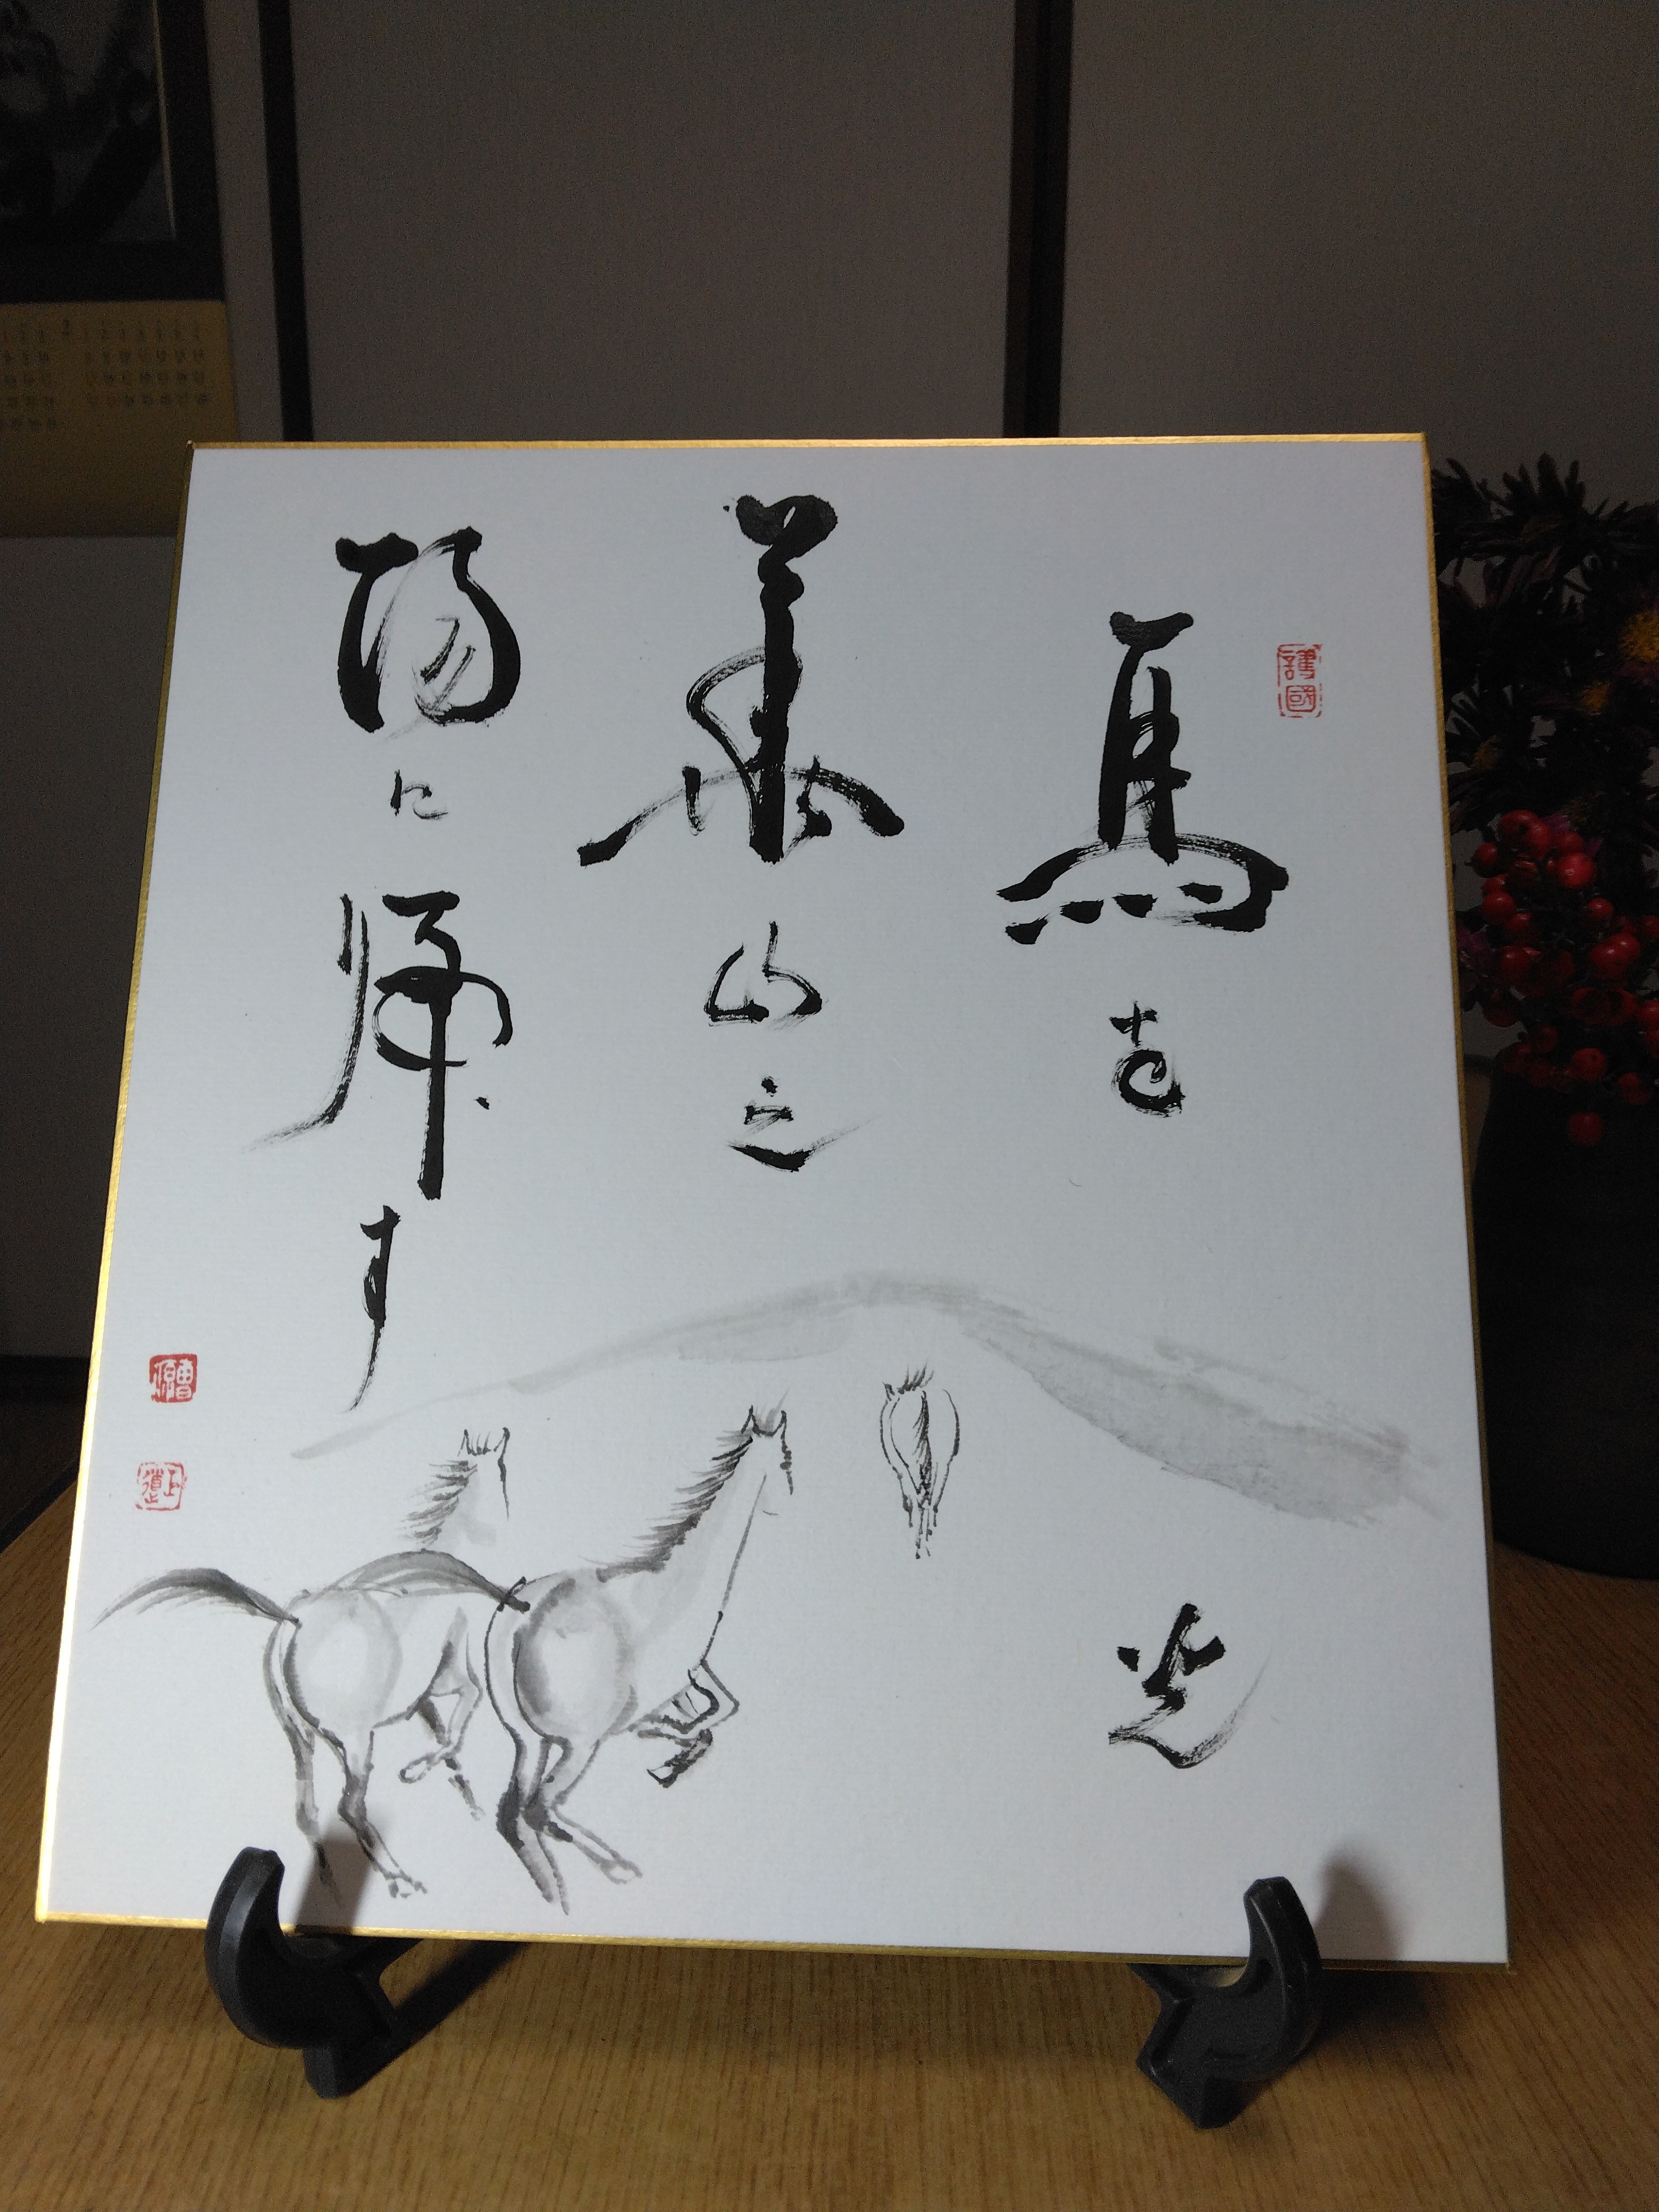 馬を
華山之
陽に帰す
光
護國